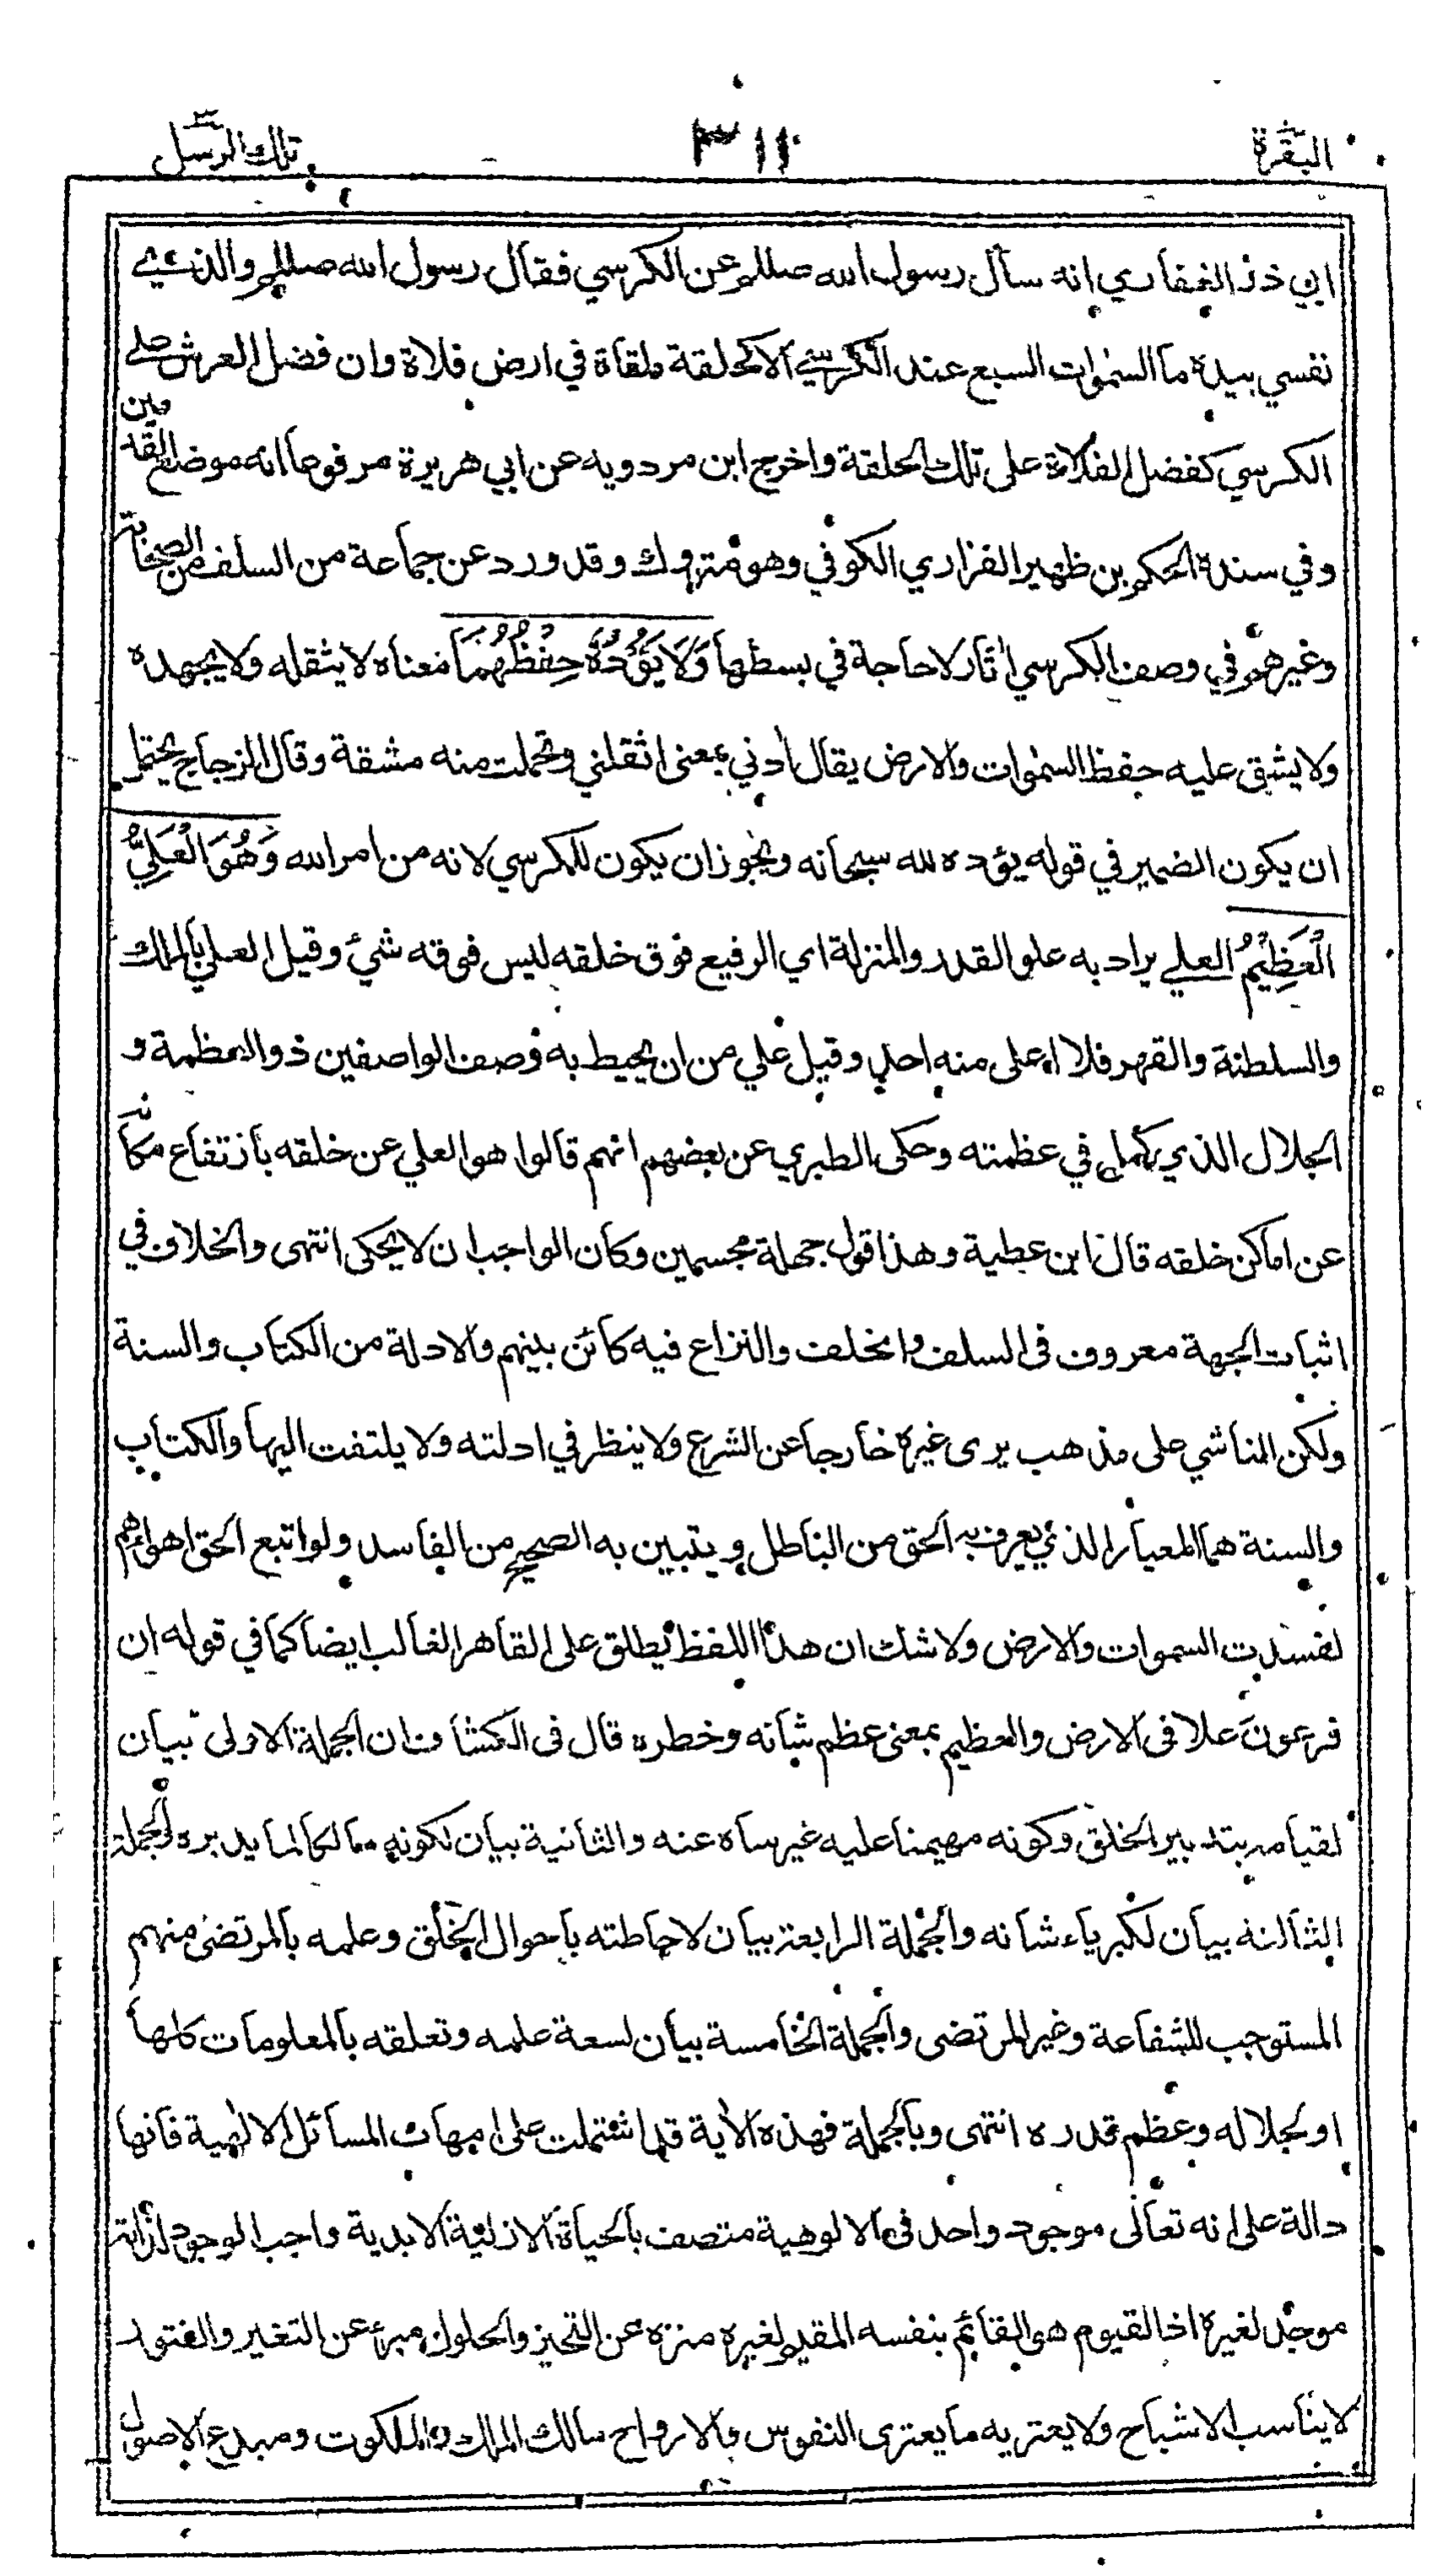 البقرة
٣١١
تلك الرسل
ابي ذر الغفاري انه سأل رسول الله صللم عن الكرسي فقال رسول الله صللم والذي
نفسي بيده ما السموات السبع عند الكرسي الا كحلقة ملقاة في ارض فلاة وان فضل العرش على
الكرسي كفضل الفلاة على تلك الحلقة واخرج ابن مردويه عن ابي هريرة مرفوعا انه موضع القدمين
وفي سنده الحكم بن ظهير الفزاري الكوفي وهو متروك وقد ورد عن جماعة من السلف من الصحابة
وغيرهم في وصف الكرسي اثار لا حاجة في بسطها وَلَا يَؤُدُهُ حِفْظُهُمَا معناه لا يثقله ولا يجهده
ولا يشق عليه حفظ السموات والارض يقال أدني بمعنى اثقلني وتحملت منه مشقة وقال الزجاج يحتمل
ان يكون الضمير في قوله يؤده لله سبحانه ويجوز ان يكون للكرسي لانه من امر الله وَهُوَ الْعَلِيُّ
الْعَظِيْمُ العلي يراد به علو القدر والمنزلة اي الرفيع فوق خلقه ليس فوقه شيء وقيل العلي بالملك
والسلطنة والقهر فلا اعلى منه احد وقيل علي من ان يحيط به وصف الواصفين ذو العظمة و
الجلال الذي كمل في عظمته وحكى الطبري عن بعضهم انهم قالوا هو العلي عن خلقه بارتفاع مكانه
عن اماكن خلقه قال ابن عطية وهذا قول جهلة مجسمين وكان الواجب ان لا يحكى انتهى والخلاف في
اثبات الجهة معروف في السلف والخلف والنزاع فيه كائن بينهم والادلة من الكتاب والسنة
ولكن الناشي على مذهب يرى غيره خارجا عن الشرع ولا ينظر في ادلته ولا يلتفت اليها والكتاب
والسنة هما المعيار الذي يعرف به الحق من الباطل ويتبين به الصحيح من الفاسد ولو اتبع الحق اهواءهم
لفسدت السموات والارض ولا شك ان هذا اللفظ يطلق على القاهر الغالب ايضا كما في قوله ان
فرعون علا في الارض والعظيم بمعنى عظم شانه وخطره قال في الكشاف ان الجملة الاولى بيان
لقيامه بتدبير الخلق وكونه مهيمنا عليه غير ساه عنه والثانية بيان لكونه مالكا لما يدبره والجملة
الثالثة بيان لكبرياء شانه والجملة الرابعة بيان لاحاطته باحوال الخلق وعلمه بالمرتضى منهم
المستوجب للشفاعة وغير المرتضى والجملة الخامسة بيان لسعة علمه وتعلقه بالمعلومات كلها
او لجلاله وعظم قدره انتهى وبالجملة فهذه الاية قد اشتملت على امهات المسائل الالهية فانها
دالة على انه تعالى موجود واحد في الالوهية متصف بالحياة الازلية الابدية واجب الوجود لذاته
موجد لغيره اذ القيوم هو القائم بنفسه المقيم لغيره منزه عن التحيز والحلول مبرء عن التغير والفتور
لا يناسب الاشباح ولا يعتريه ما يعتري النفوس والارواح مالك الملك والملكوت ومبدع الاصول